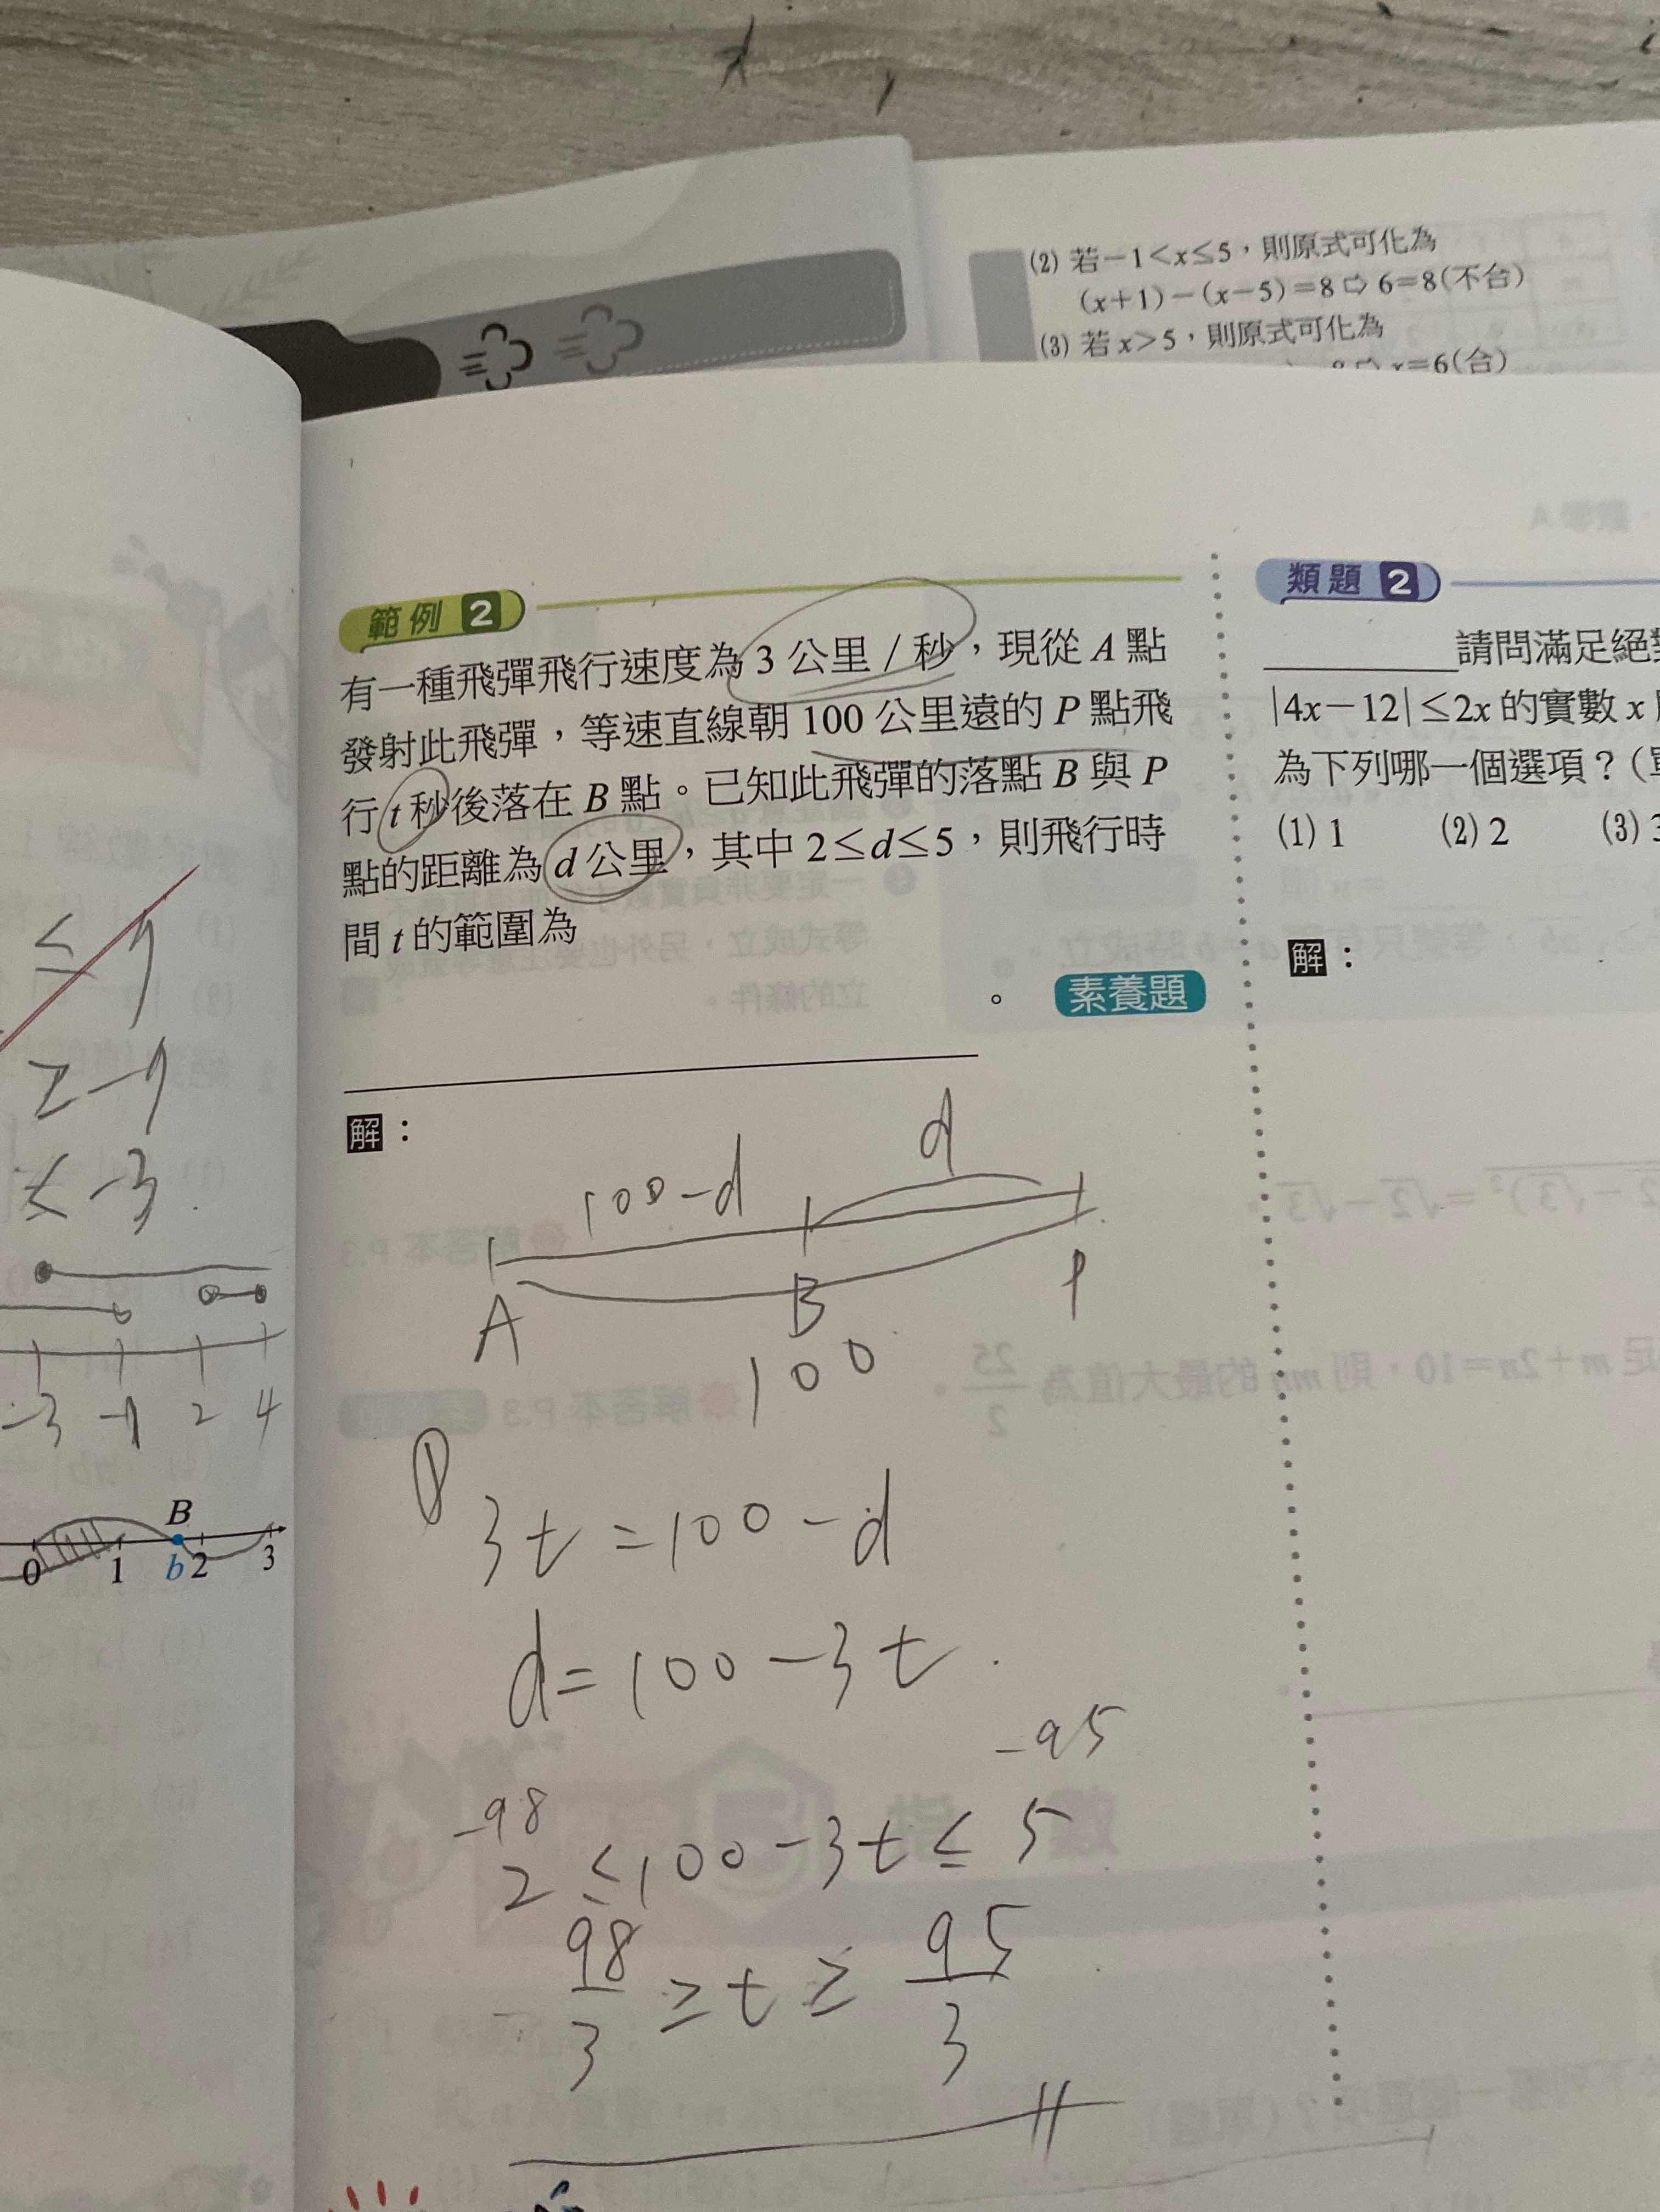 (2) 若-1<x≤5，則原式可化為
(x+1)-(x-5)=8⇨6=8(不合)
(3) 若x>5，則原式可化為
x=6(合)
範例 2
有一種飛彈飛行速度為 3 公里／秒，現從 A 點
發射此飛彈，等速直線朝 100 公里遠的 P 點飛
行 t 秒後落在 B 點。已知此飛彈的落點 B 與 P
點的距離為 d 公里，其中 2≤d≤5，則飛行時
間 t 的範圍為
。 素養題
解：
100-d d
A B P
100
① 3t=100-d
d=100-3t
-98 -95
2≤100-3t≤5
98/3 ≥t≥ 95/3
類題 2
請問滿足絕
|4x-12|≤2x 的實數 x
為下列哪一個選項？(
(1) 1 (2) 2 (3)
解：
≤-3
-3 -1 2 4
B
0 1 b 2 3